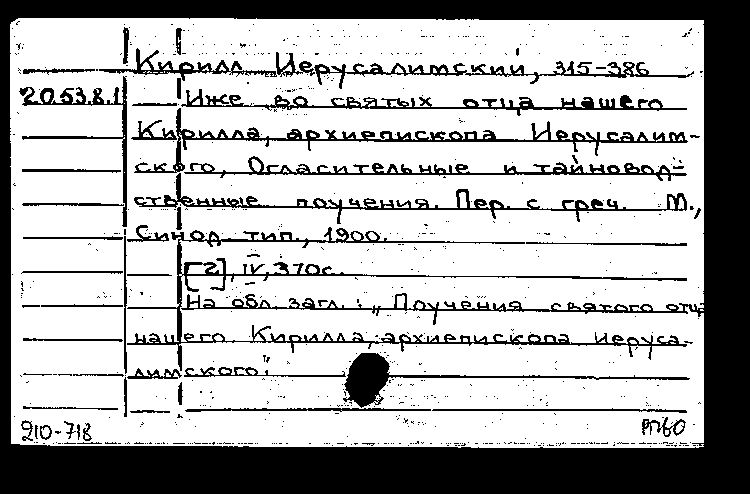 Кирилл Иерусалимский, 315-386
20.53.8.1 Иже во святых отца нашего
Кирилла, архиепископа Иерусалим-
ского, Огласительные и тайновод-
ственные поучения. Пер. с греч. М.,
Синод. тип., 1900.
[2], IV, 370с.
На обл. загл.: "Поучения святого отца
нашего Кирилла, архиепископа Иеруса-
лимского".
210-718